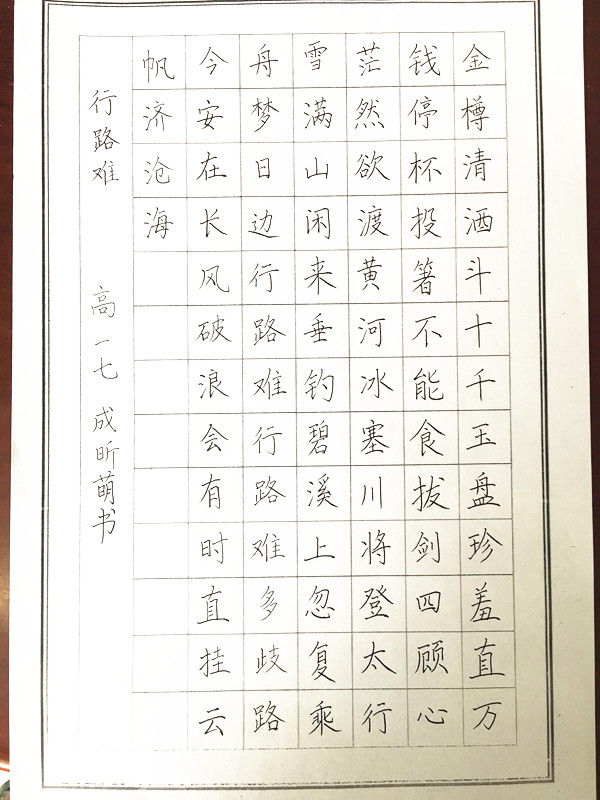 金樽清酒斗十千玉盘珍羞直万
钱停杯投箸不能食拔剑四顾心
茫然欲渡黄河冰塞川将登太行
雪满山闲来垂钓碧溪上忽复乘
舟梦日边行路难行路难多歧路
今安在长风破浪会有时直挂云
帆济沧海
行路难 高一七 成昕萌书